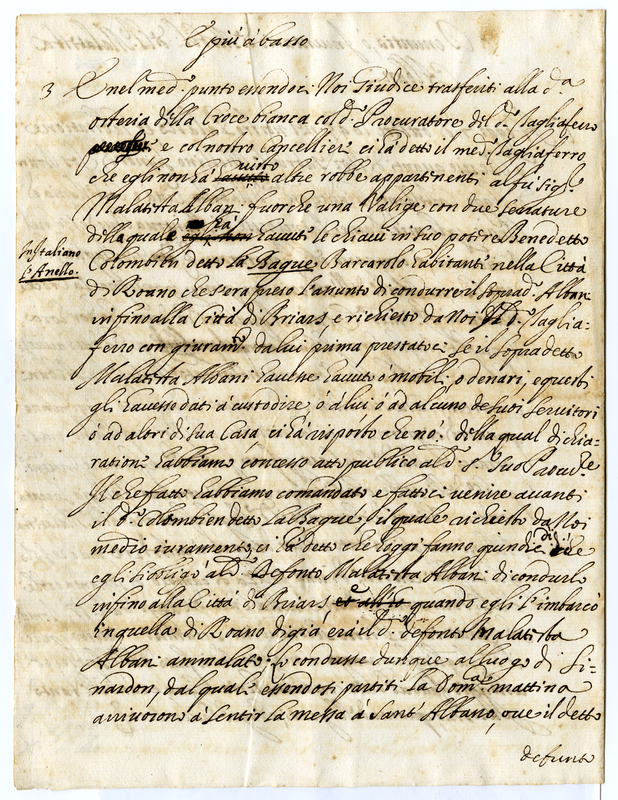 E più à basso
3 E nel med.º punto essendoci Noi Giudice trasferiti alla d.ª
osteria della Croce bianca col d.º Procuratore del d.º Tagliaferro
e col nostro Cancellier ci hà detto il med.º Tagliaferro
che egli non hà visto altre robbe appartinenti al fù sig.r
Malatista Albani fuorche una Valige con due serrature
della quale hà havute le chiavi in suo potere Benedetto
In Italiano
l'Anello.
Colombien detto la Baque Barcarolo habitante nella Città
di Roano che s'era preso l'assunto di condurre il soprad.º Albani
infino alla Città di Briars e richiesto da Noi il d.º Taglia-
ferro con giuram.to da lui prima prestatoci se il sopradetto
Malatista Albani havesse havuto ò mobili, o denari, e questi
gli havesse dati à custodire, ò à lui ò ad alcuno de suoi servitori
ò ad altri di sua Casa, ci hà risposto che nò. della qual dichia-
ratione habbiamo concesso atto publico al d.º s.r suo Procu.re
Il che fatto habbiamo comandato e fattoci venire avanti
il d.º Colombien detto la Baque il quale richiesto da Noi
medio iuramento, ci hà detto che hoggi fanno quindici dì che
egli si obligò al d.º Defonto Malatista Albani di condurlo
infino alla Città di Briars quando egli l'imbarcò
in quella di Roano di già era il d.º defonto Malatista
Albani ammalato: lo condusse dunque al luogo di Si-
nardon, dal quale essendosi partiti la Dom.ca mattina
arrivorono à sentir la messa à Sant'Albano, ove il detto
defunto